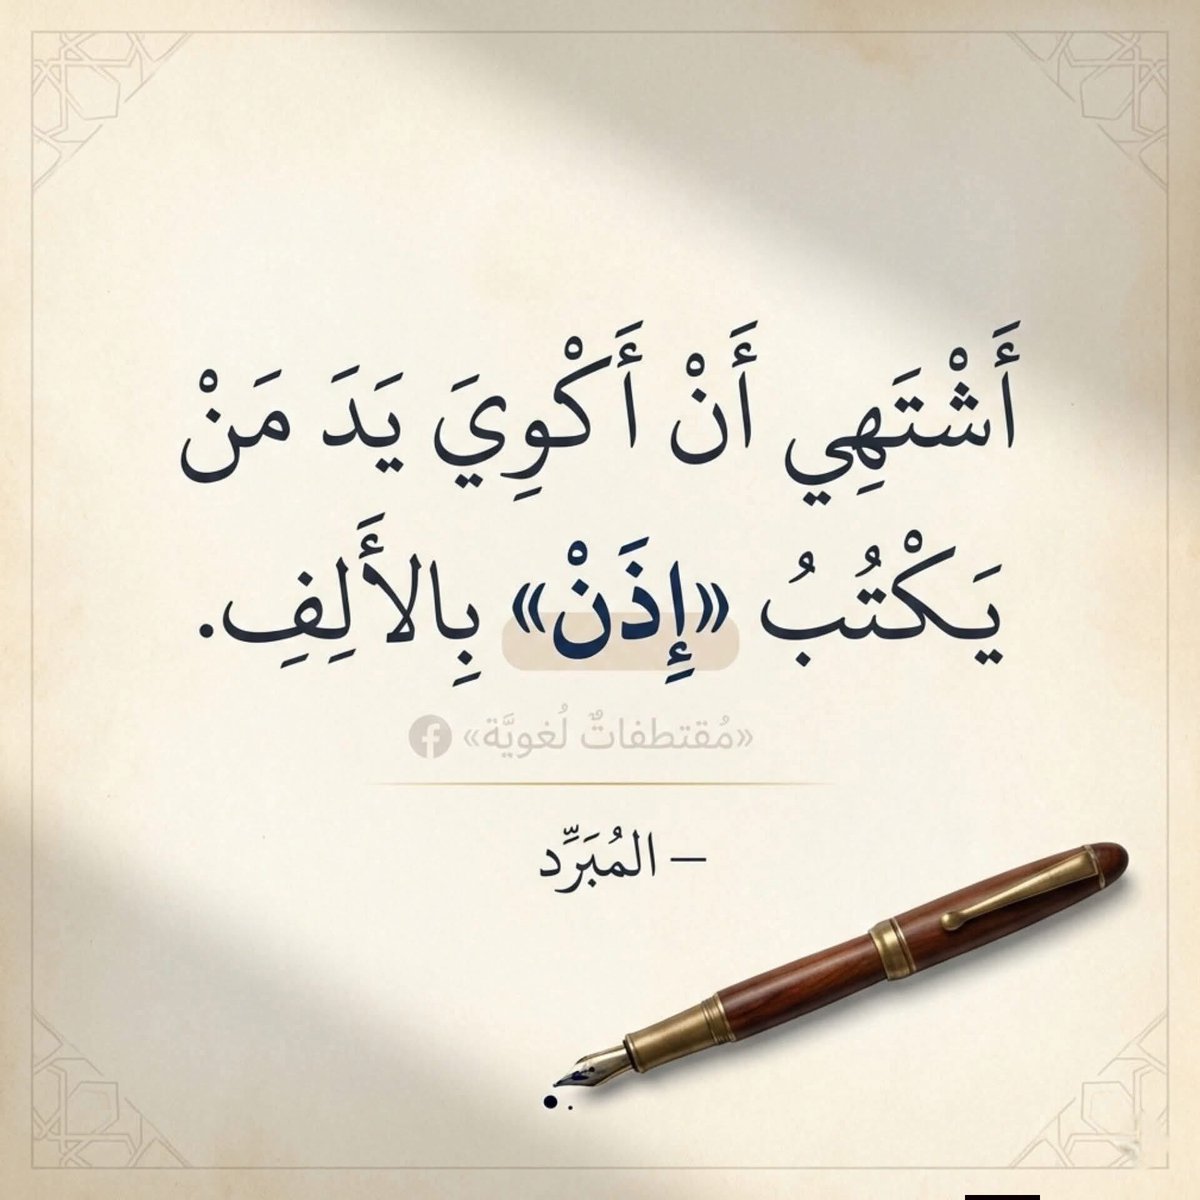 أَشْتَهِي أَنْ أَكْوِيَ يَدَ مَنْ
يَكْتُبُ «إِذَنْ» بِالأَلِفِ.
«مُقتطفاتٌ لُغويَّة»
– المُبَرِّد